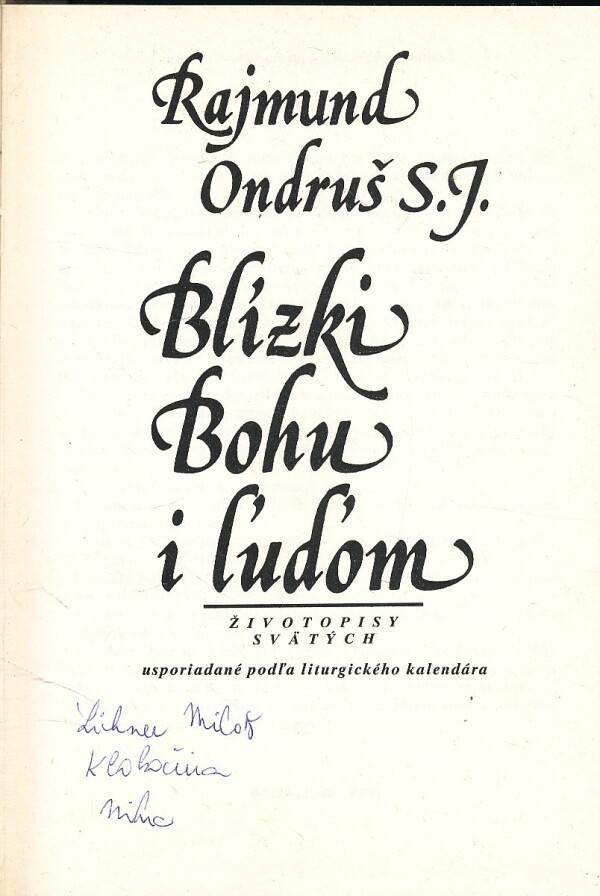 Rajmund
Ondruš S.J.
Blízki
Bohu
i ľuďom
ŽIVOTOPISY
SVÄTÝCH
usporiadané podľa liturgického kalendára
Miloš
Klokočina